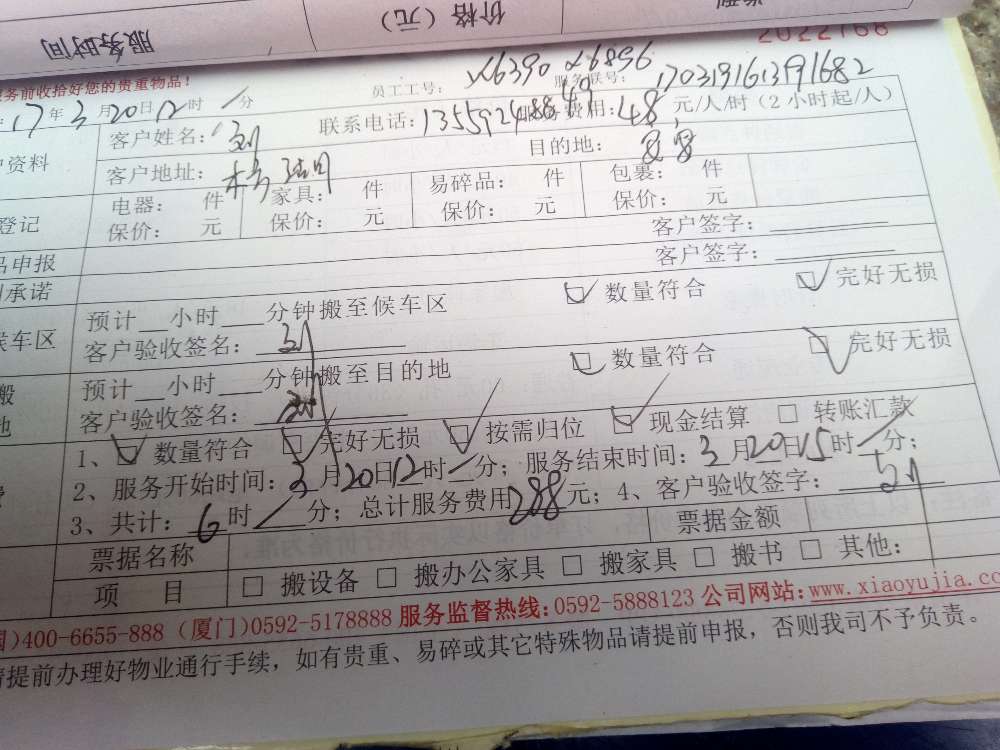 服务时间 价格（元） 类型
2022168
务前收拾好您的贵重物品！ 员工工号： X6390 X6896 服务联号： 170319161391682
17年3月20日12时／分 联系电话：13559248849 费用：48元/人/时（2小时起/人）
户资料 客户姓名：刘
客户地址： 目的地：
登记 电器： 件 家具： 件 易碎品： 件 包裹： 件
保价： 元 保价： 元 保价： 元 保价： 元
品申报 客户签字：
承诺 客户签字：
候车区 预计__小时___分钟搬至候车区 数量符合 完好无损
客户验收签名：刘
搬 预计__小时___分钟搬至目的地 数量符合 完好无损
地 客户验收签名：刘
1、数量符合 完好无损 按需归位 现金结算 □ 转账汇款
2、服务开始时间：3月20日12时／分；服务结束时间：3月20日15时／分；
3、共计：6时／分；总计服务费用288元；4、客户验收签字：刘
票据名称 票据金额
项 目 □ 搬设备 □ 搬办公家具 □ 搬家具 □ 搬书 □ 其他：
)400-6655-888 (厦门)0592-5178888 服务监督热线：0592-5888123 公司网站：www.xiaoyujia.co
请提前办理好物业通行手续，如有贵重、易碎或其它特殊物品请提前申报，否则我司不予负责。